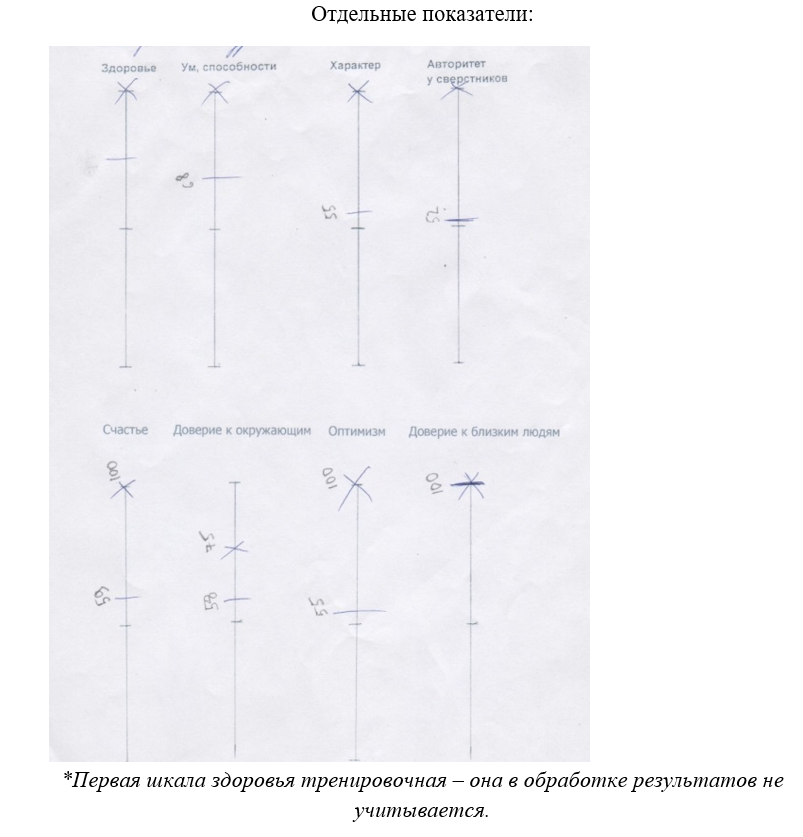 Отдельные показатели:
Здоровье Ум, способности Характер Авторитет
у сверстников
68
55
52
Счастье Доверие к окружающим Оптимизм Доверие к близким людям
100 100 100
75
59 58 55
*Первая шкала здоровья тренировочная – она в обработке результатов не
учитывается.